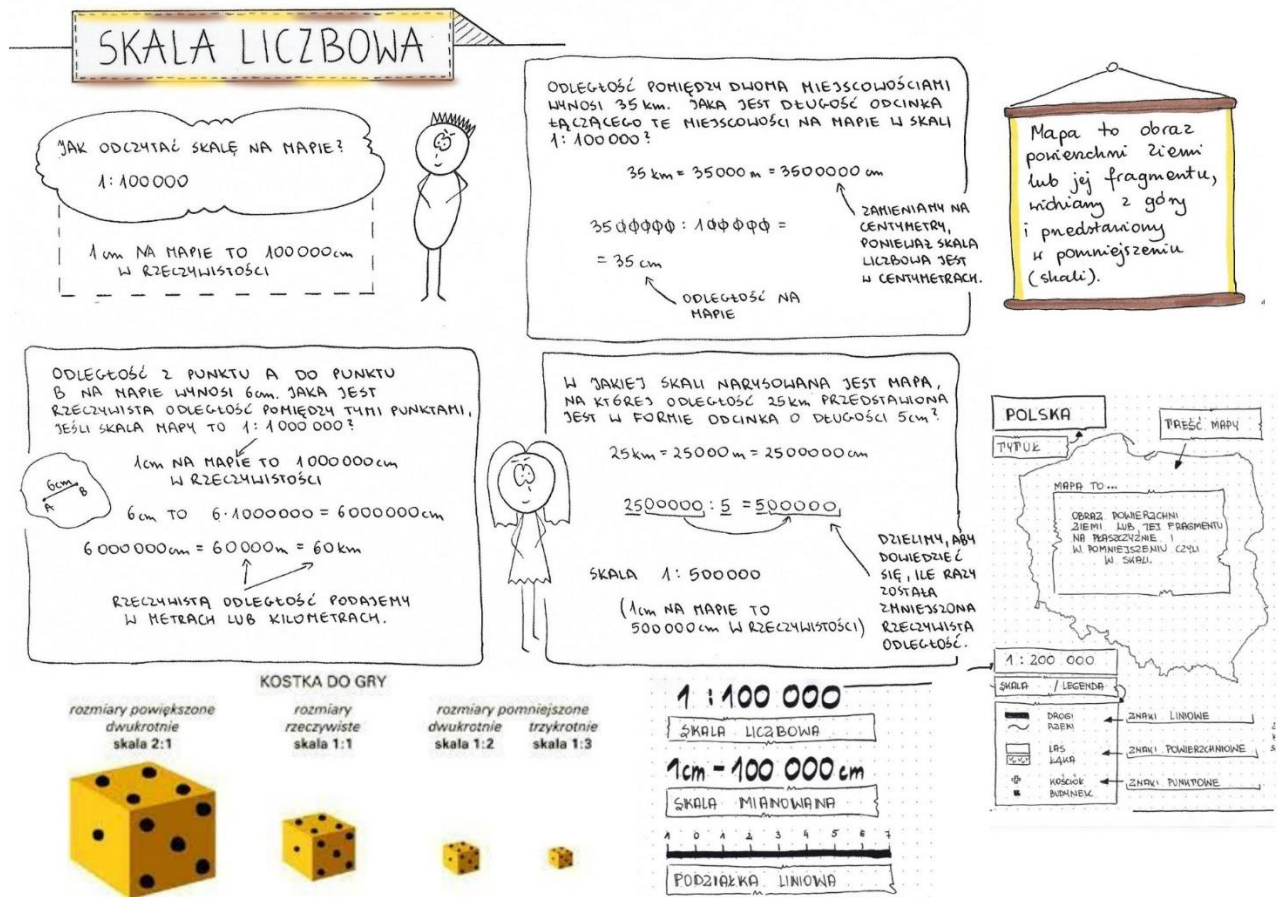 SKALA LICZBOWA
JAK ODCZYTAĆ SKALĘ NA MAPIE?
1:100 000
1 cm NA MAPIE TO 100 000 cm
W RZECZYWISTOŚCI
ODLEGŁOŚĆ POMIĘDZY DWOMA MIEJSCOWOŚCIAMI
WYNOSI 35 km. JAKA JEST DŁUGOŚĆ ODCINKA
ŁĄCZĄCEGO TE MIEJSCOWOŚCI NA MAPIE W SKALI
1:100 000?
35 km = 35000 m = 3500000 cm
3500000 : 100000 =
= 35 cm
ODLEGŁOŚĆ NA
MAPIE
ZAMIENIAMY NA
CENTYMETRY,
PONIEWAŻ SKALA
LICZBOWA JEST
W CENTYMETRACH.
Mapa to obraz
powierzchni Ziemi
lub jej fragmentu,
widziany z góry
i przedstawiony
w pomniejszeniu
(skali).
ODLEGŁOŚĆ Z PUNKTU A DO PUNKTU
B NA MAPIE WYNOSI 6cm. JAKA JEST
RZECZYWISTA ODLEGŁOŚĆ POMIĘDZY TYMI PUNKTAMI,
JEŚLI SKALA MAPY TO 1:1 000 000?
1cm NA MAPIE TO 1000000cm
W RZECZYWISTOŚCI
6cm
A
B
6cm TO 6·1000000 = 6000000cm
6 000 000cm = 60 000m = 60 km
RZECZYWISTĄ ODLEGŁOŚĆ PODAJEMY
W METRACH LUB KILOMETRACH.
W JAKIEJ SKALI NARYSOWANA JEST MAPA,
NA KTÓREJ ODLEGŁOŚĆ 25km PRZEDSTAWIONA
JEST W FORMIE ODCINKA O DŁUGOŚCI 5cm?
25km = 25000m = 2500000cm
2500000 : 5 = 500000
SKALA 1:500000
(1cm NA MAPIE TO
500000cm W RZECZYWISTOŚCI)
DZIELIMY, ABY
DOWIEDZIEĆ
SIĘ, ILE RAZY
ZOSTAŁA
ZMNIEJSZONA
RZECZYWISTA
ODLEGŁOŚĆ.
POLSKA
TYTUŁ
TREŚĆ MAPY
MAPA TO...
OBRAZ POWIERZCHNI
ZIEMI LUB JEJ FRAGMENTU
NA PŁASZCZYŹNIE I
W POMNIEJSZENIU CZYLI
W SKALI.
1:200 000
SKALA / LEGENDA
DROGI
RZEKI
ZNAKI LINIOWE
LAS
ŁĄKA
ZNAKI POWIERZCHNIOWE
KOŚCIÓŁ
BUDYNEK
ZNAKI PUNKTOWE
KOSTKA DO GRY
rozmiary powiększone
dwukrotnie
skala 2:1
rozmiary
rzeczywiste
skala 1:1
rozmiary pomniejszone
dwukrotnie trzykrotnie
skala 1:2 skala 1:3
1 :100 000
SKALA LICZBOWA
1cm - 100 000 cm
SKALA MIANOWANA
1 0 1 2 3 4 5 6 7
PODZIAŁKA LINIOWA